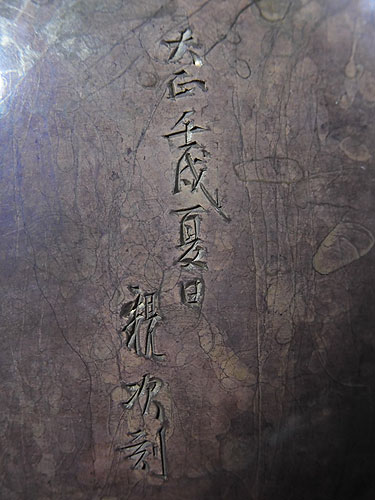 大正壬戌夏日
親次刻